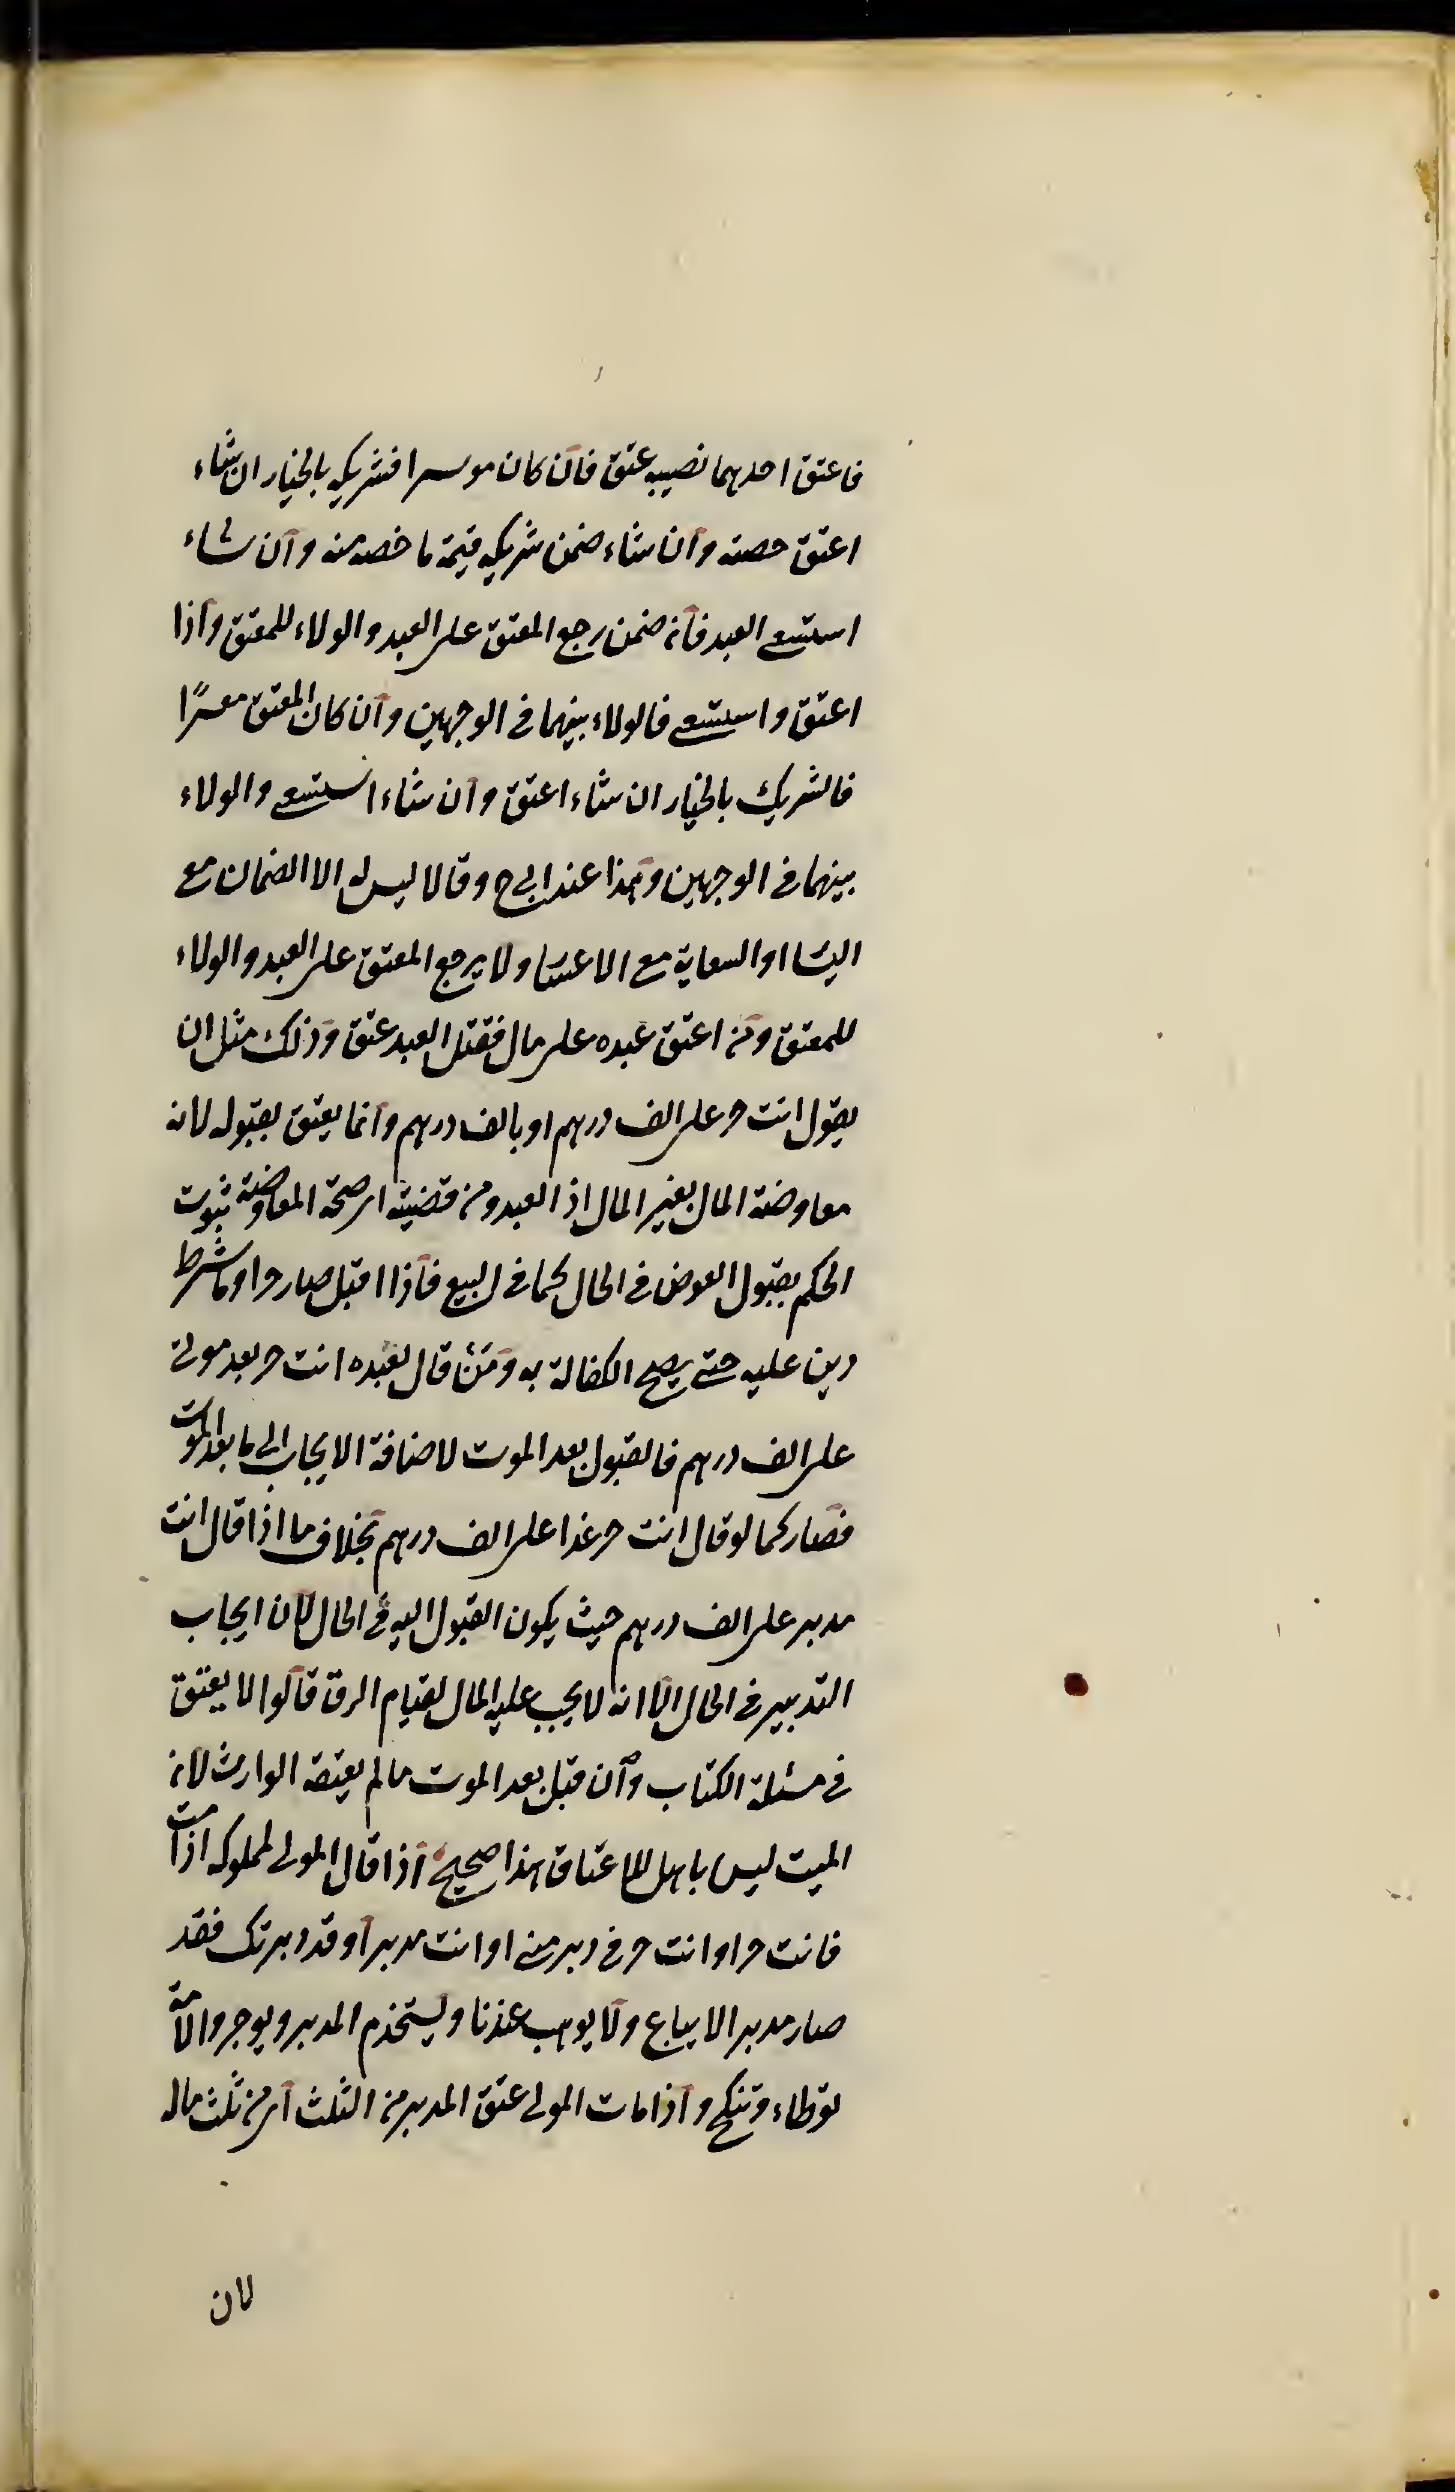 فاعتق احدهما نصيبه عتق فان كان موسرا فشريكه بالخيار ان شاء
اعتق حصته وان شاء ضمن شريكه قيمة ما خصه منه وان شاء
استسعى العبد فانه ضمن رجع المعتق على العبد والولاء للمعتق واذا
اعتق واستسعى فالولاء بينهما في الوجهين وان كان المعتق معسرًا
فالشريك بالخيار ان شاء اعتق وان شاء استسعى والولاء
بينهما في الوجهين وهذا عند ابي ح وقالا ليس له الا الضمان مع
اليسا او السعاية مع الاعسا ولا يرجع المعتق على العبد والولاء
للمعتق ومن اعتق عبده على مال فقتل العبد عتق وذلك مثل ان
يقول انت حر على الف درهم او بالف درهم وانما يعتق بقبوله لانه
معاوضة المال بغير المال اذ العبد ومن قضيته اى صحة المعاوضة ثبوت
الحكم بقبول العوض في الحال كما في البيع فاذا اقبل صار حرا وما شرط
دين عليه حتى يصح الكفالة به ومن قال لعبده انت حر بعد موتى
على الف درهم فالقبول بعد الموت لاضافة الايجاب الى ما بعد الموت
فصار كما لو قال انت حر غدا على الف درهم بخلاف ما اذا قال انت
مدبر على الف درهم حيث يكون القبول اليه في الحال لان ايجاب
التدبير في الحال الا انه لا يجب عليه المال لقيام الرق قالوا لا يعتق
في مسئلة الكتاب وان قبل بعد الموت ما لم يعتقه الوارث لانه
الميت ليس باهل للاعتاق هذا صحيح اذا قال المولى لمملوكه اذا مت
فانت حر او انت حر في دبر منى او انت مدبر او قد دبرتك فقد
صار مدبرا لا يباع ولا يوهب عندنا ويستخدم المدبر ويوجر والامة
توطاء وتنكح واذا مات المولى عتق المدبر من الثلث اى من ثلث ماله
لان